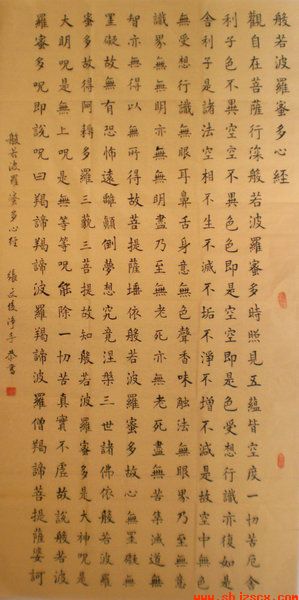 般若波羅蜜多心經
觀自在菩薩行深般若波羅蜜多時照見五蘊皆空度一切苦厄舍
利子色不異空空不異色色即是空空即是色受想行識亦復如是
舍利子是諸法空相不生不滅不垢不淨不增不減是故空中無色
無受想行識無眼耳鼻舌身意無色聲香味觸法無眼界乃至無意
識界無無明亦無無明盡乃至無老死亦無老死盡無苦集滅道無
智亦無得以無所得故菩提薩埵依般若波羅蜜多故心無罣礙無
罣礙故無有恐怖遠離顛倒夢想究竟涅槃三世諸佛依般若波羅
蜜多故得阿耨多羅三藐三菩提故知般若波羅蜜多是大神呪是
大明呪是無上呪是無等等呪能除一切苦真實不虛故說般若波
羅蜜多呪即說呪曰羯諦羯諦波羅羯諦波羅僧羯諦菩提薩婆訶
般若波羅蜜多心經 張 淨手恭書
www.shjzscx.com